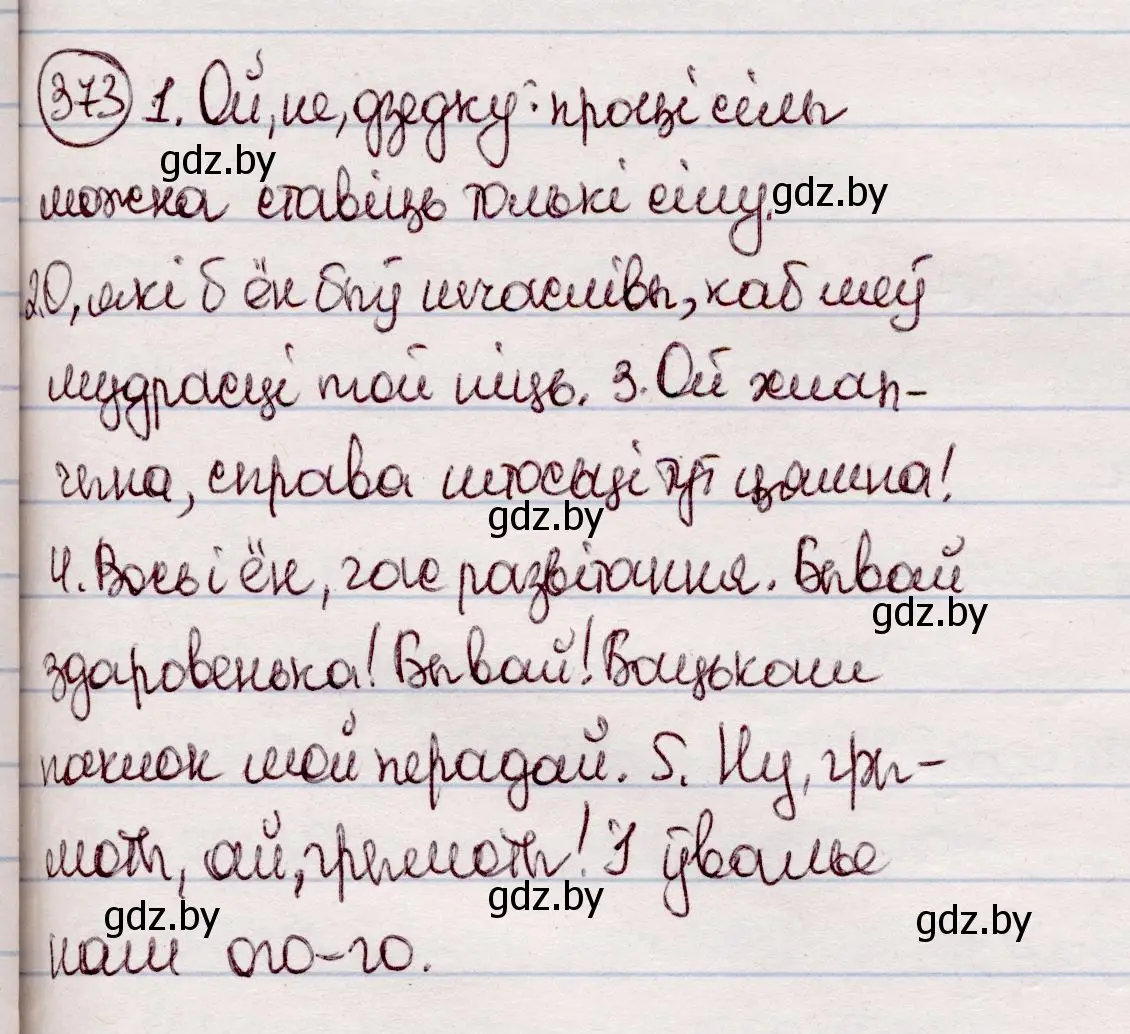 373 1. Ой, не, дзедку: проці сілы
gdz.by
можна ставіць толькі сілу.
gdz.by
2. О, які б ён быў шчаслівы, каб меў
мудрасці той ніць. 3. Ой хлап-
чына, справа штосьці тут цямна!
gdz.by
4. Вось і ён, час развітання. Бывай
gdz.by
здаровенька! Бывай! Бацькам
паклон мой перадай. 5. Ну, гры-
моты, ай, грымоты! І ўвалье
gdz.by
gdz.by
gdz.by
нам ого-го.